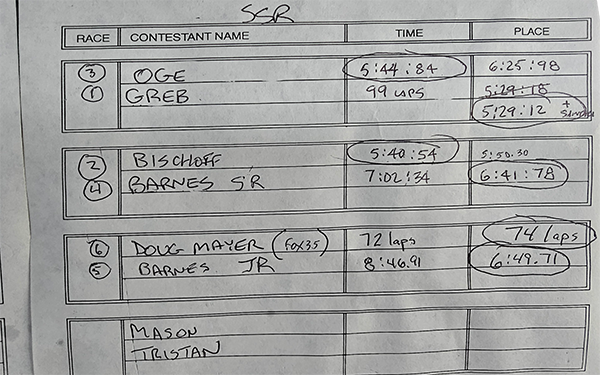 SSR
RACE CONTESTANT NAME TIME PLACE
3 OGE 5:44:84 6:25:98
1 GREB 99 LAPS 5:29:18
5:29:12 +
2 BISCHOFF 5:40:54 5:50.30
4 BARNES SR 7:02:34 6:41:78
6 DOUG MAYER (FOX35) 72 laps 74 laps
5 BARNES JR 8:46.91 6:49.71
MASON
TRISTAN